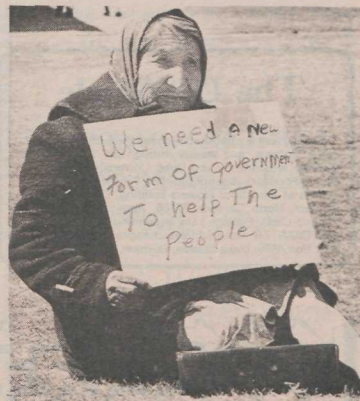 We need A New
Form OF government
To help The
People